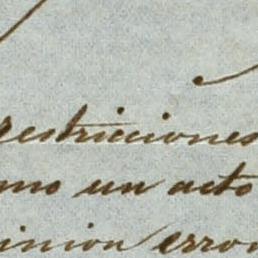 restricciones
mo un acto
inion erro